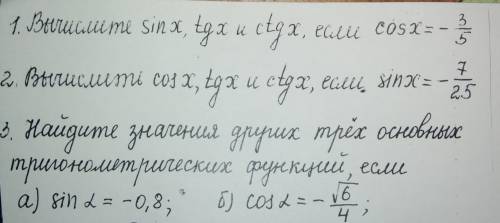 1. Вычислите sin x, tg x и ctg x, если cos x = - 3/5
2. Вычислите cos x, tg x и ctg x, если sin x = - 7/25
3. Найдите значения других трёх основных
тригонометрических функций, если
а) sin α = -0,8; б) cos α = - √6/4;